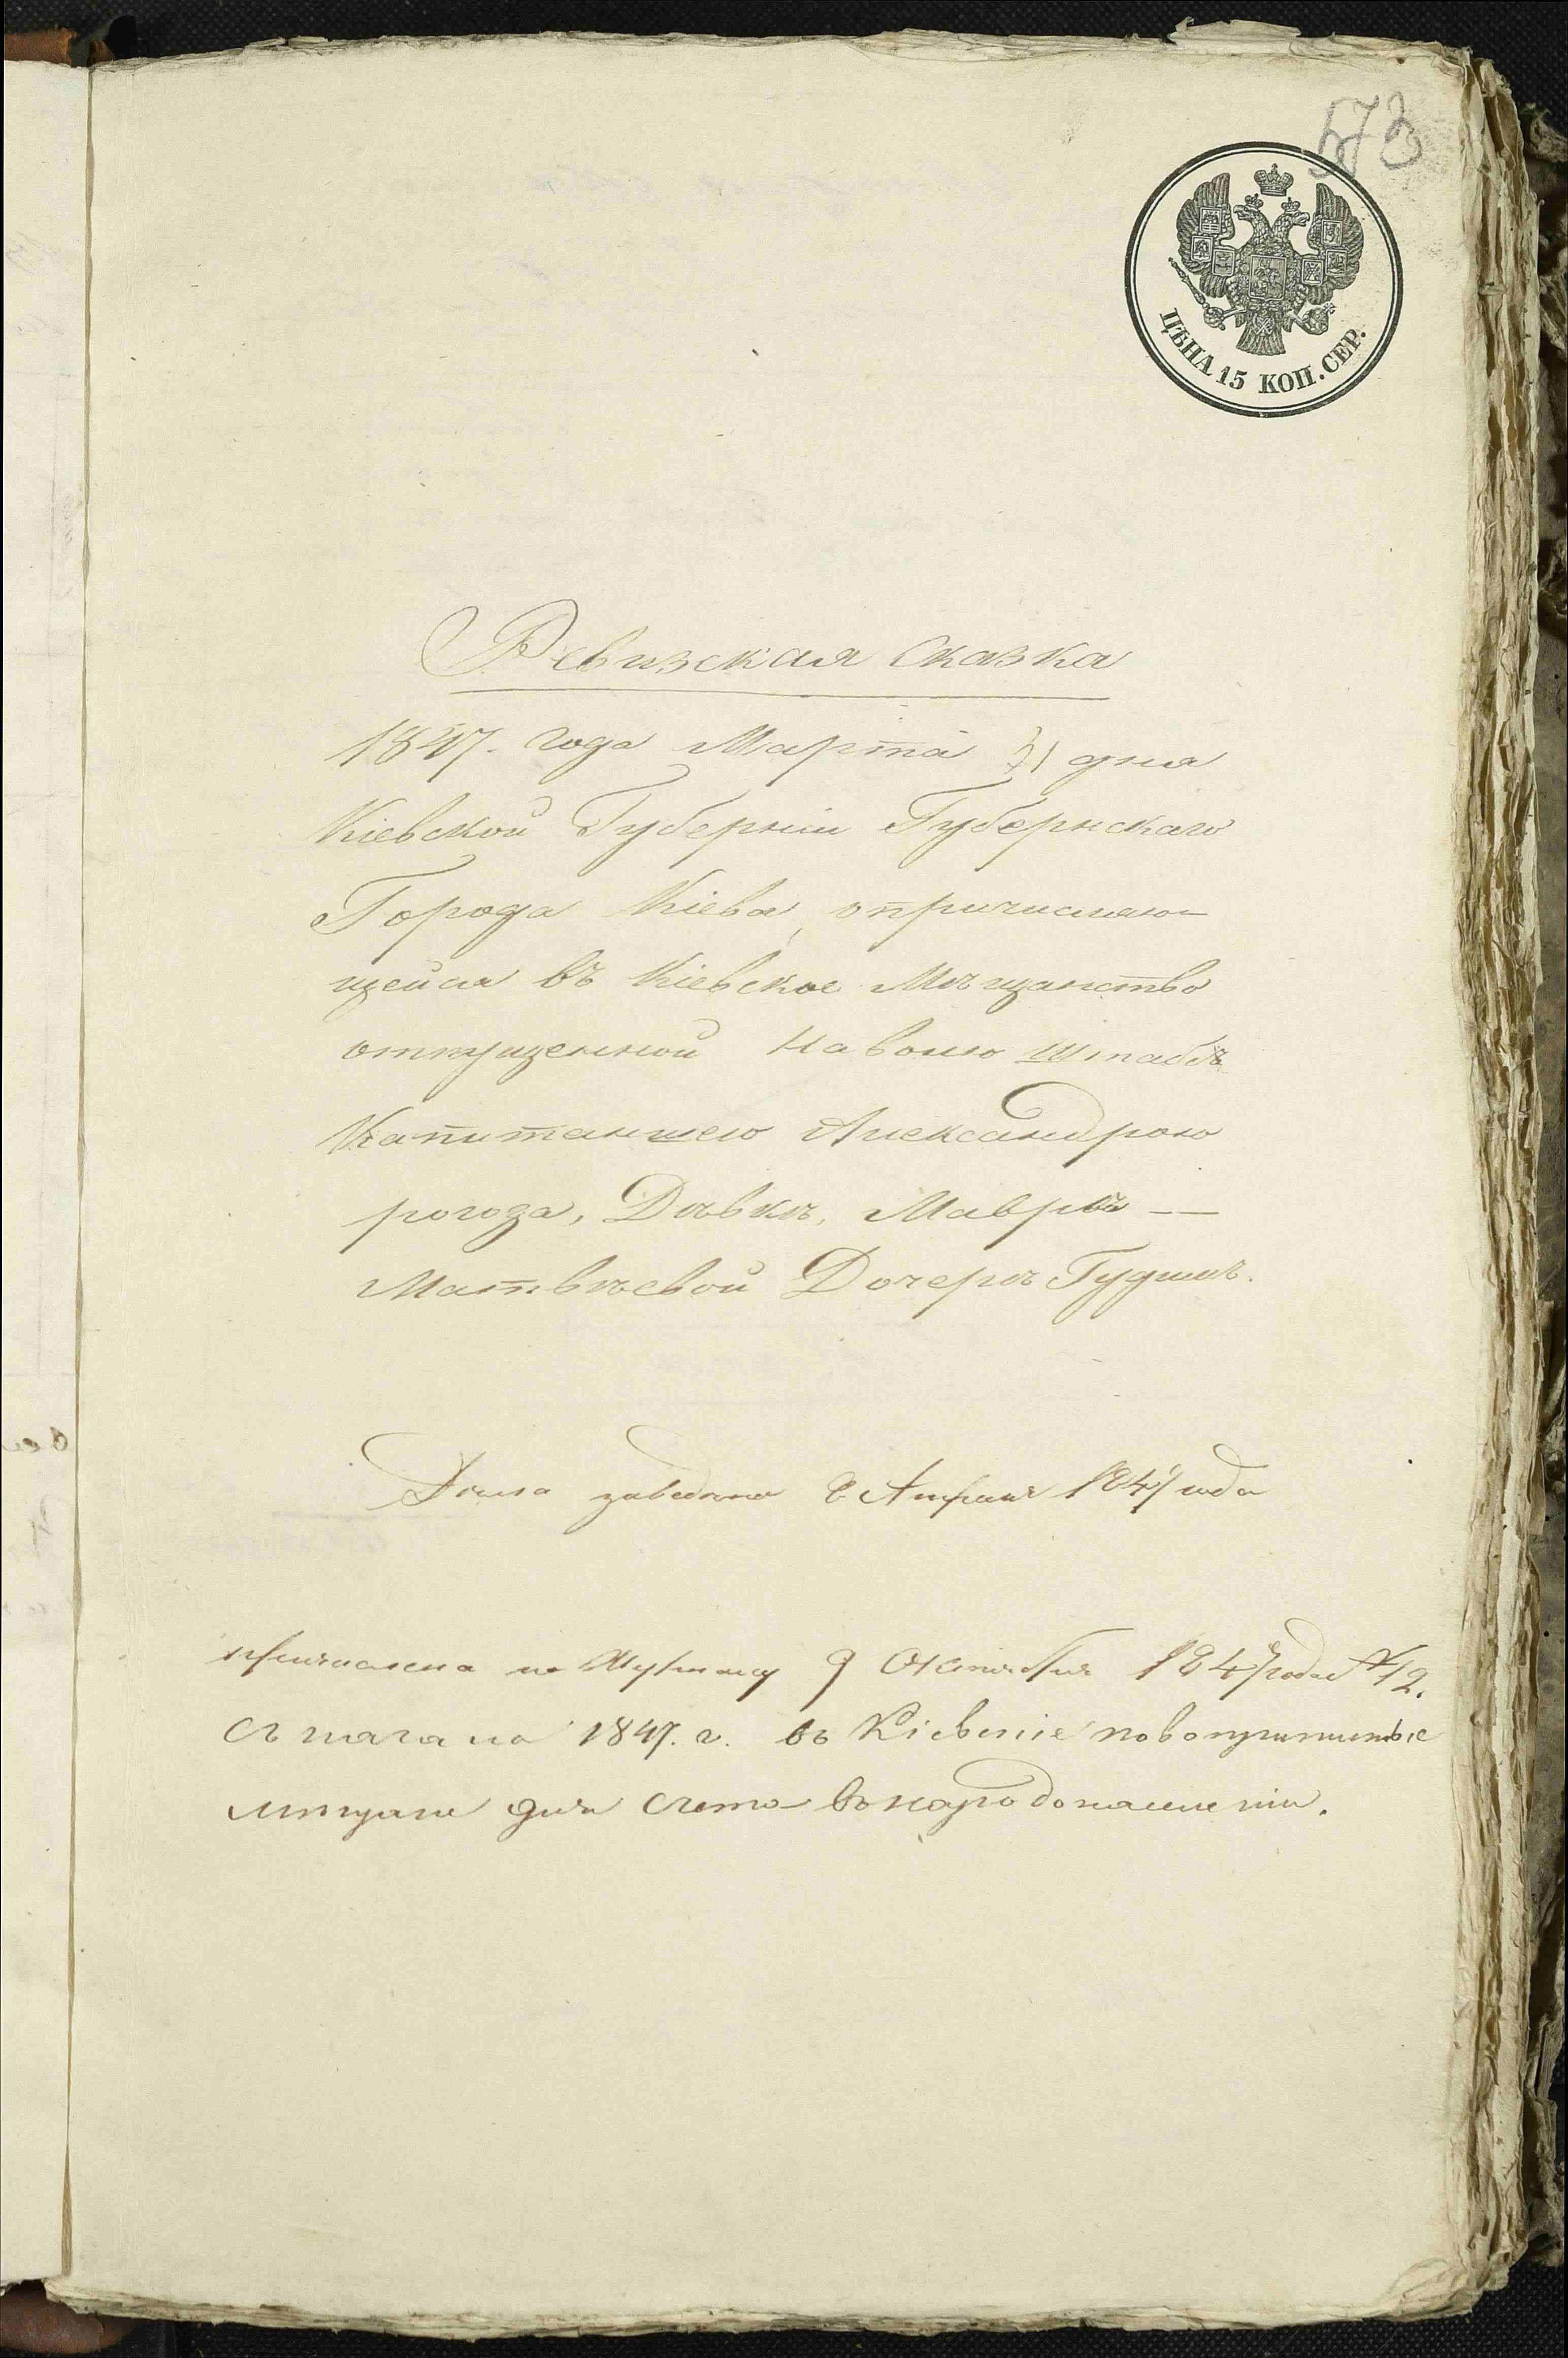 573
ЦѢНА 15 КОП. СЕР.
Ревизская Сказка
1847. года Марта 31 дня
Кіевской Губерніи Губернскаго
Города Кіева, опричисляю-
щейся въ Кіевское Мѣщанство
отпущенной на волю Штабъ
Капитаншею Александрою
рогоза, Дѣвкѣ, Маврѣ —
Матвѣевой Дочерѣ Гудимѣ.
заведено 8 Апрѣля 1847 года
причислена по Журналу 9 Октября 1847 года № 12.
съ начала 1847. г. въ Кіевскіе
мѣщане для счета въ народонаселеніи.